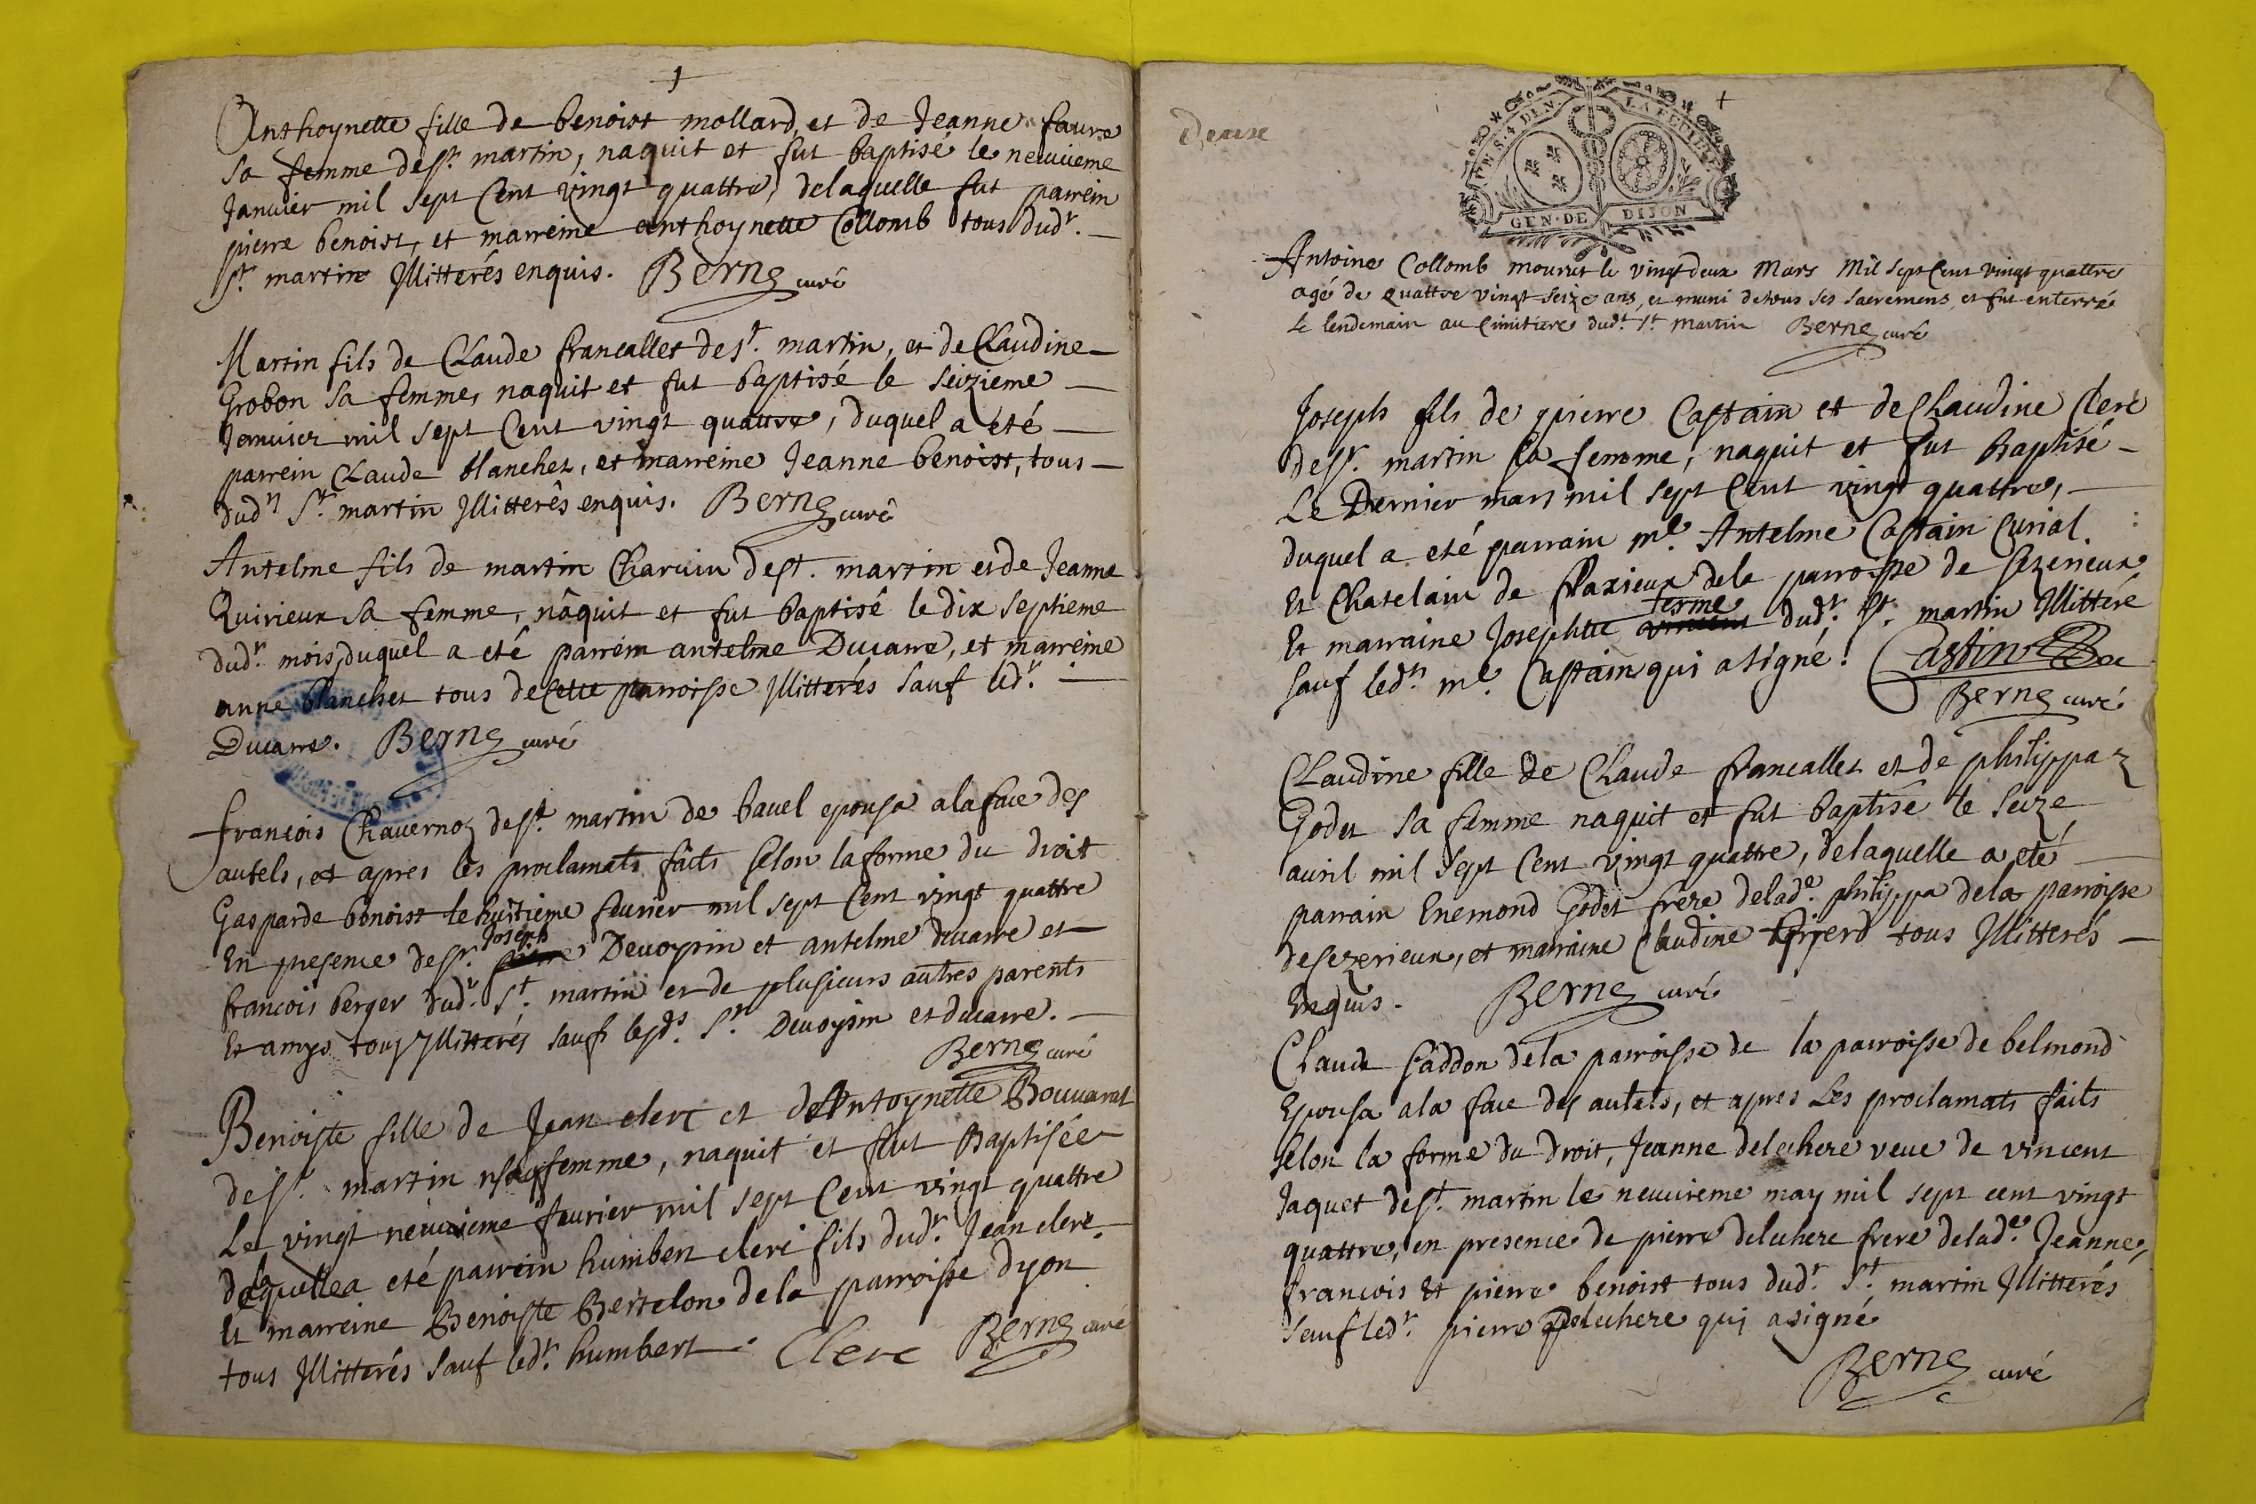 Anthoynette fille de benoist mollard, et de Jeanne faure
sa femme de st. martin, naquit et fut baptisé le neuuieme
Januier mil sept Cent vingt quattre, delaquelle fut parrein
pierre benoist, et marreine anthoynette Collomb tous dudt.
st. martin Illitterés enquis. Berne curé
Martin fils de Claude francallet de st. martin, et de Claudine
Grobon sa femme, naquit et fut baptisé le seizieme
Januier mil sept Cent vingt quattre, duquel a été
parrein Claude blanchet, et marreine Jeanne benoist, tous
dudt. st. martin Illitterés enquis. Berne curé
Antelme fils de martin Charuin de st. martin et de Jeanne
Quirieux sa femme, naquit et fut baptisé le dix septieme
dudt. mois, duquel a eté parrein antelme Ducarre, et marreine
anne blanchet tous de cette parroisse Illitterés sauf ledt.
Ducarre. Berne curé
françois Chauernoz de st. martin de bauel epousa a la face des
autels, et apres les proclamats faits selon la forme du droit
Gasparde benoist le huitieme feurier mil sept Cent vingt quattre
Joseph
En presence de sr. Deuoysin et antelme ducarre et
françois berger dudt. st. martin et de plusieurs autres parents
Et amys tous Illitterés sauf lesds. sr. Deuoysin et ducarre.
Berne curé
Benoiste fille de Jean clerc et de Antoynette Bouuarat
de st. martin sa femme, naquit et fut Baptisée
Le vingt neuuieme feurier mil sept Cent vingt quattre
de laquelle a eté parrein humbert clerc fils dudt. Jean clerc.
Et marreine Benoiste Bertelon de la parroisse dyon
tous Illitterés sauf ledt. humbert. Clerc Berne curé
UN S. 4 DEN. LA FEUILLE
GEN. DE DIJON
Antoine Collomb mourut le vingt deux Mars Mil sept Cent vingt quattre
agé de quattre vingt seize ans, et muni de tous ses sacremens, et fut enterré
Le lendemain au Cimitiere dudt. st. martin Berne curé
Joseph fils de pierre Castain et de Claudine Clerc
de st. martin sa femme, naquit et fut Baptisé
Le Dernier mars mil sept Cent vingt quattre,
duquel a eté parrain me. Antelme Castain Curial
Et Chatelain de flaxieux de la parroisse de sezerieux
ferme
Et marraine Josephtte dudt. st. martin Illitteré
sauf ledt. me. Castain qui a signé. Castin
Berne curé
Claudine fille de Claude francallet et de philippa
Godet sa femme naquit et fut baptisé le seize
auril mil sept Cent vingt quattre, de laquelle a eté
parrain Enemond Godet frere de lade. philippa de la parroisse
de sezerieux, et marraine Claudine tous Illitterés
Enquis. Berne curé
Claude saddon de la parroisse de la parroisse de belmond
Epousa a la face des autels, et apres Les proclamats faits
selon la forme du droit, Jeanne delechere veue de vincent
Jaquet de st. martin le neuuieme may mil sept cent vingt
quattre, en presence de pierre delechere frere de lade. Jeanne,
francois Et pierre benoist tous dudt. st. martin Illitterés
sauf ledt. pierre delechere qui a signé
Berne curé